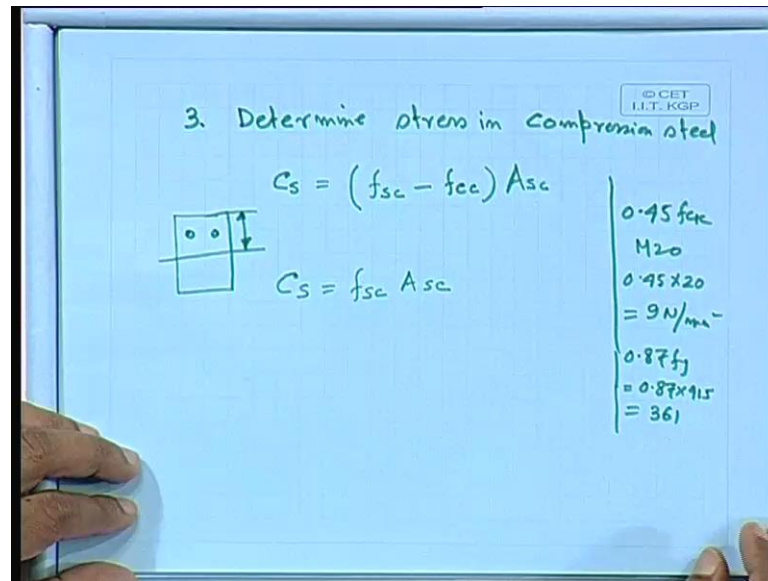 © CET
I.I.T. KGP
3. Determine stress in compression steel
Cs = (fsc - fcc) Asc
Cs = fsc Asc
0.45 fck
M20
0.45 X 20
= 9 N/mm²
0.87 fy
= 0.87 X 415
= 361